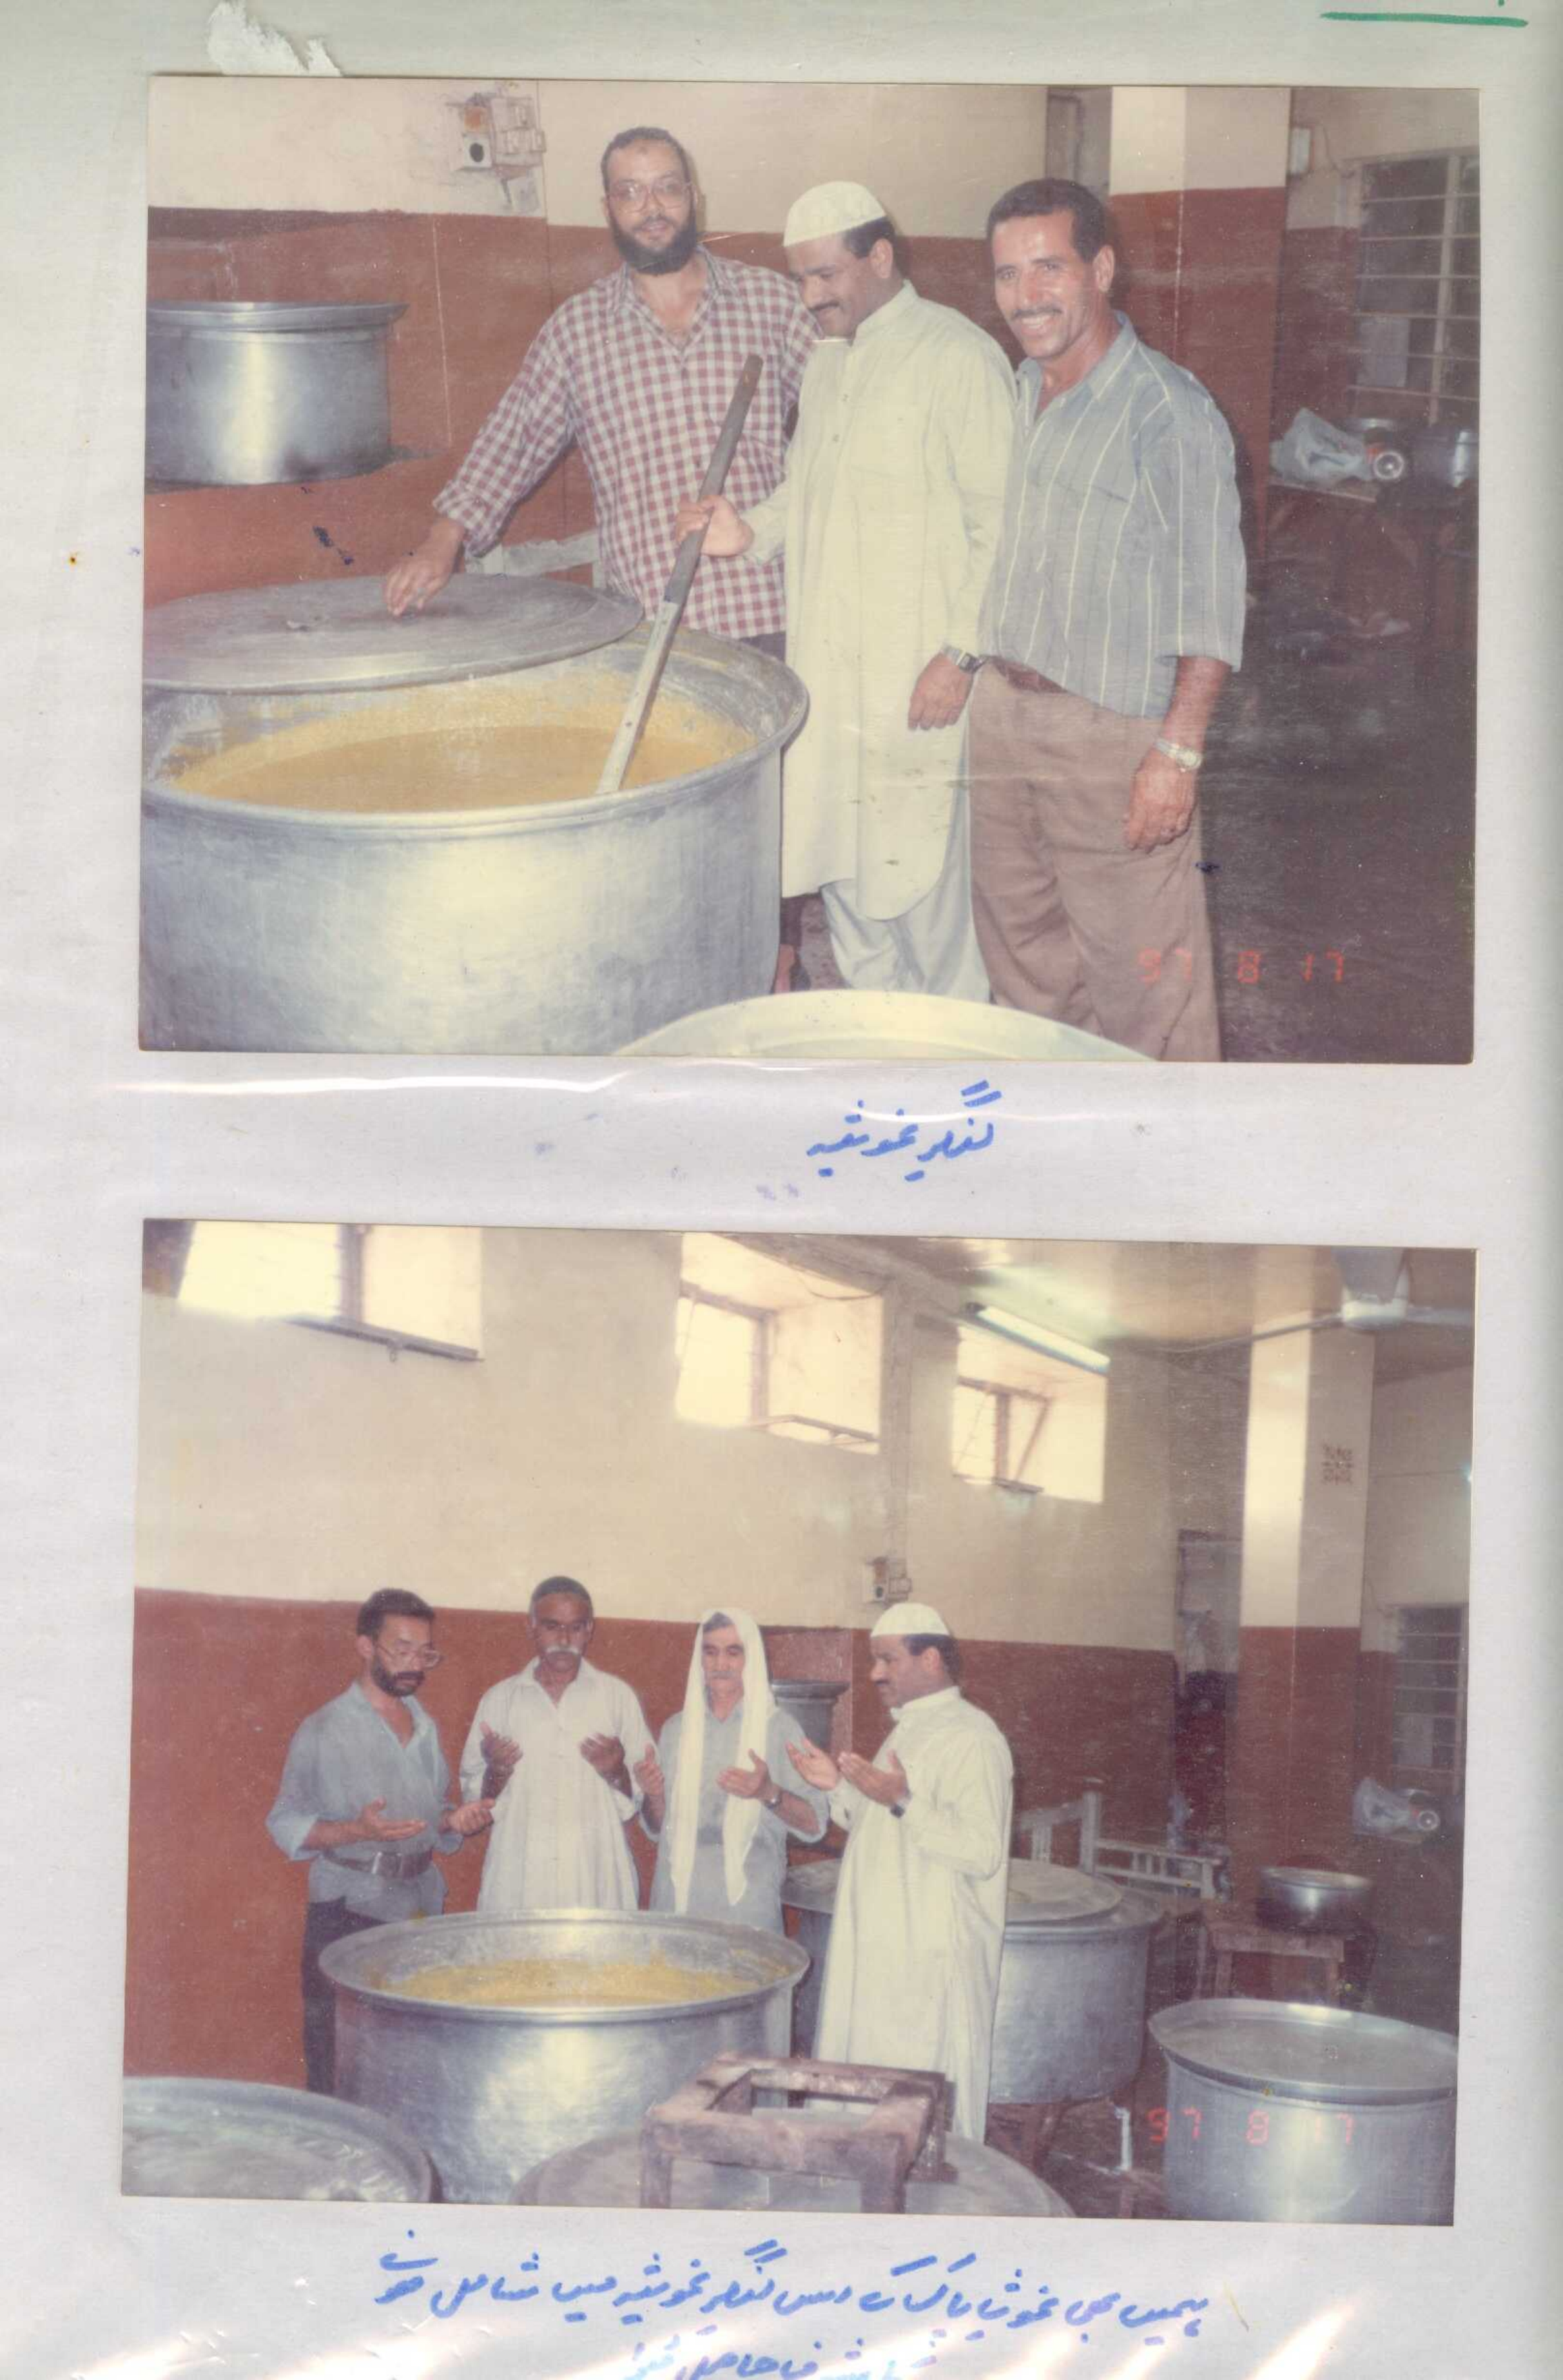 97 8 17
لنگرِ غوثیہ
97 8 17
ہمیں بھی غوث پاک کے اس لنگر غوثیہ میں شامل ہونے
کا شرف حاصل